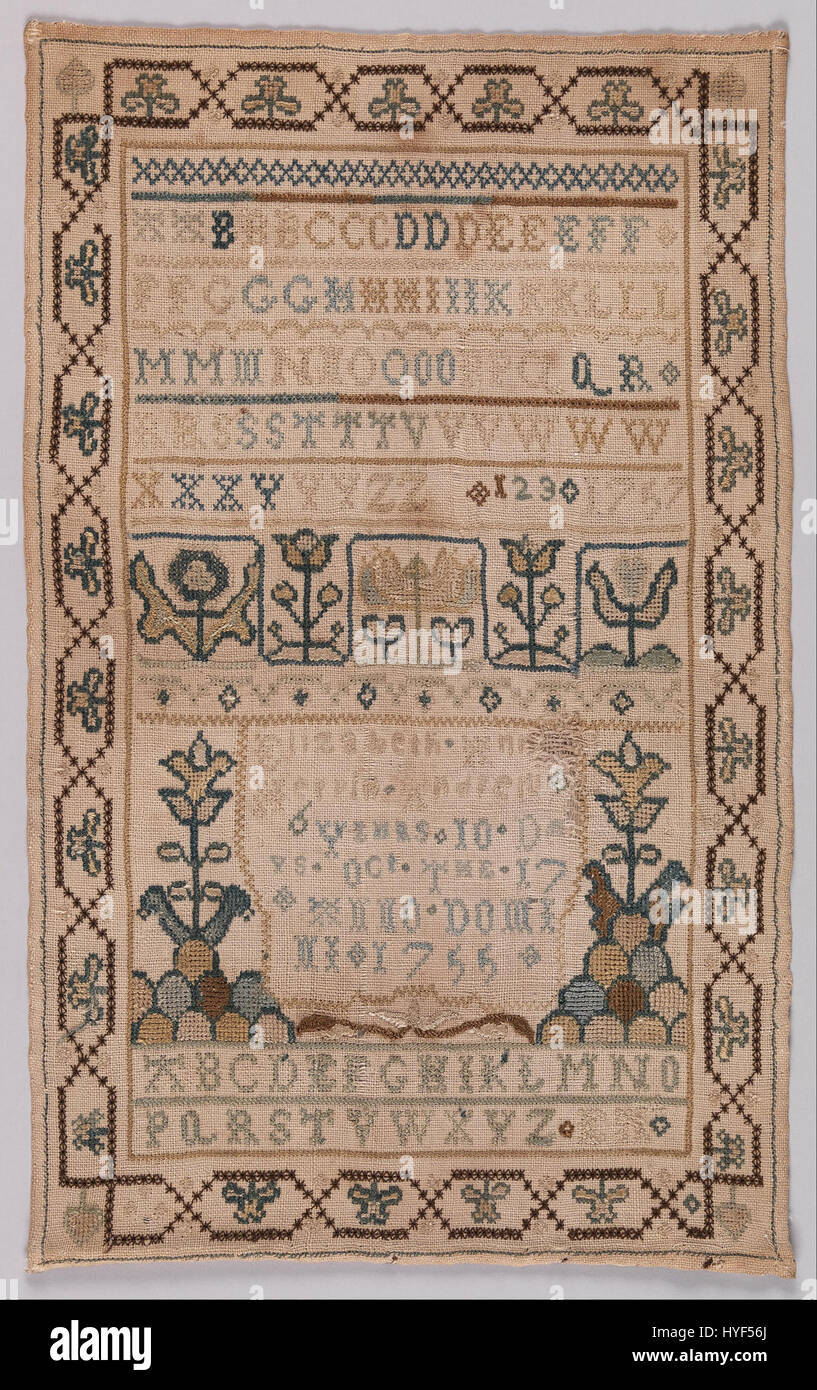 B B B C C C D D D E E E F F
F F G G G H H H I I I K K K L L L
M M M N O O O O Q R
R R S S S T T T V V V W W W
X X X Y Y Y Z Z 123
Elizabeth Ann
6 YEARS 10 DA
YS OCT THE 17
ANNO DOMI
NI 1755
A B C D E F G H I K L M N O
P Q R S T V W X Y Z
a
alamy
alamy stock photo
HYF56J
www.alamy.com